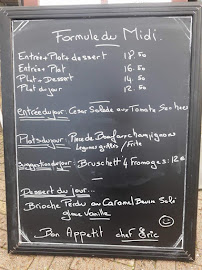 Formule du Midi.
Entrée + Plat + dessert 18.50
Entrée + Plat 16.50
Plat + Dessert 14.50
Plat du jour 12.50
entrée du jour: Cesar Salade aux Tomate Sechées
Plats du jour: Pièce de Boeuf aux champignons
Legumes grillés / Frite
Suggestion du jour: Bruschett 4 Fromages: 12€
Dessert du jour...
Brioche Perdu au Caramel Beurre Salé
glace Vanille
Bon Appetit chef Eric